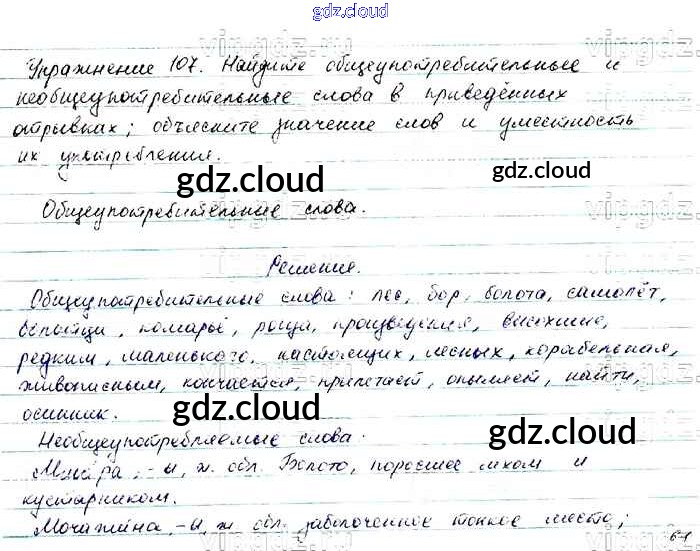 gdz.cloud
Упражнение 107. Найдите общеупотребительные и
необщеупотребительные слова в приведённых
отрывках; объясните значение слов и уместность
их употребления.
gdz.cloud
gdz.cloud
Общеупотребительные слова.
Решение.
Общеупотребительные слова: лес, бор, болота, самолёт,
комарьё, роща, произведения, высохшие,
редким, маленького, настоящих, лесных, корабельная,
живописным, кончается, прилетает, опыляет, найти,
осинник.
gdz.cloud
gdz.cloud
Необщеупотребляемые слова.
Мшара, -ы, ж. обл. Болото, поросшее мхом и
кустарником.
Мочажина, -ы ж обл. заболоченное топкое место;
61